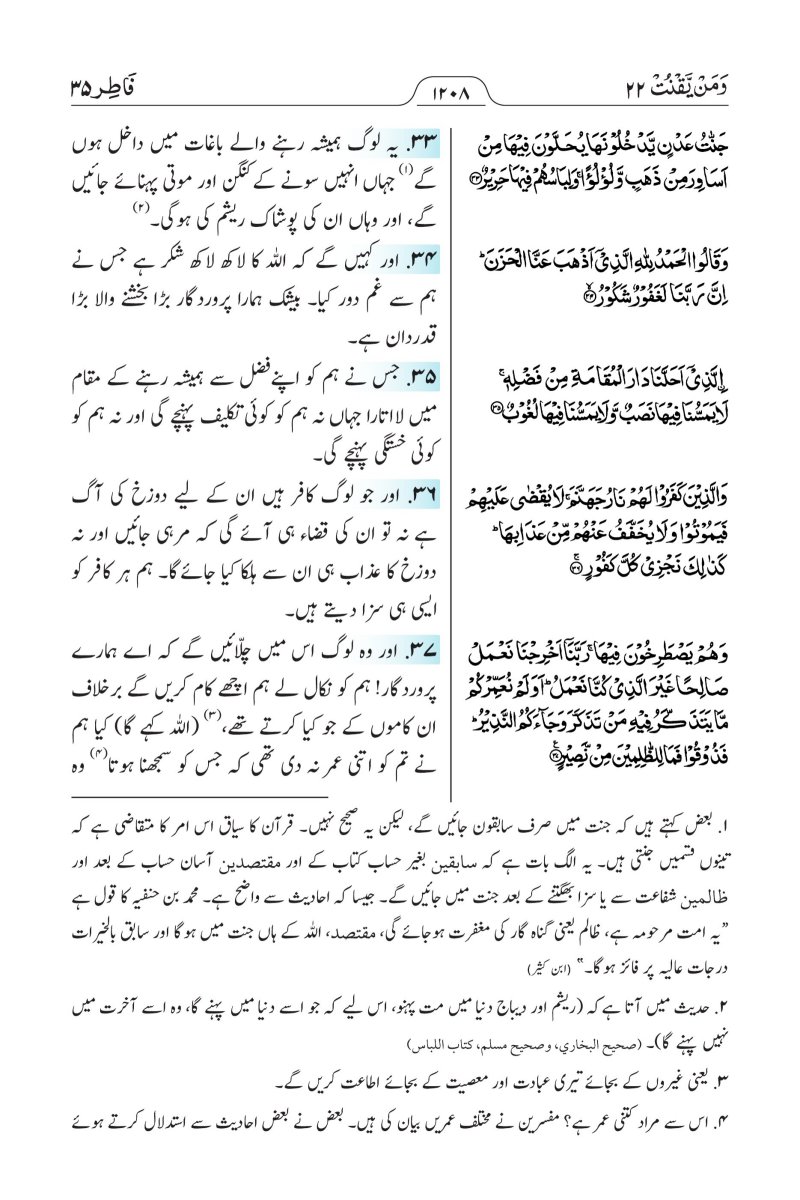 وَمَنْ يَّقْنُتْ ۲۲
۱۲۰۸
فَاطِر ۳۵
جَنّٰتُ عَدْنٍ يَّدْخُلُوْنَهَا يُحَلَّوْنَ فِيْهَا مِنْ
اَسَاوِرَ مِنْ ذَهَبٍ وَّلُؤْلُؤًا ۚ وَلِبَاسُهُمْ فِيْهَا حَرِيْرٌ ۳۳
وَقَالُوا الْحَمْدُ لِلّٰهِ الَّذِيْٓ اَذْهَبَ عَنَّا الْحَزَنَ ؕ
اِنَّ رَبَّنَا لَغَفُوْرٌ شَكُوْرُۨ ۳۴
الَّذِيْٓ اَحَلَّنَا دَارَ الْمُقَامَةِ مِنْ فَضْلِهٖ ۚ
لَا يَمَسُّنَا فِيْهَا نَصَبٌ وَّلَا يَمَسُّنَا فِيْهَا لُغُوْبٌ ۳۵
وَالَّذِيْنَ كَفَرُوْا لَهُمْ نَارُ جَهَنَّمَ ۚ لَا يُقْضٰى عَلَيْهِمْ
فَيَمُوْتُوْا وَلَا يُخَفَّفُ عَنْهُمْ مِّنْ عَذَابِهَا ؕ
كَذٰلِكَ نَجْزِيْ كُلَّ كَفُوْرٍ ۳۶
وَهُمْ يَصْطَرِخُوْنَ فِيْهَا ۚ رَبَّنَآ اَخْرِجْنَا نَعْمَلْ
صَالِحًا غَيْرَ الَّذِيْ كُنَّا نَعْمَلُ ؕ اَوَلَمْ نُعَمِّرْكُمْ
مَّا يَتَذَكَّرُ فِيْهِ مَنْ تَذَكَّرَ وَجَآءَكُمُ النَّذِيْرُ ؕ
فَذُوْقُوْا فَمَا لِلظّٰلِمِيْنَ مِنْ نَّصِيْرٍ ۳۷
۳۳. یہ لوگ ہمیشہ رہنے والے باغات میں داخل ہوں
گے(۱) جہاں انہیں سونے کے کنگن اور موتی پہنائے جائیں
گے، اور وہاں ان کی پوشاک ریشم کی ہوگی۔(۲)
۳۴. اور کہیں گے کہ اللہ کا لاکھ لاکھ شکر ہے جس نے
ہم سے غم دور کیا۔ بیشک ہمارا پروردگار بڑا بخشنے والا بڑا
قدردان ہے۔
۳۵. جس نے ہم کو اپنے فضل سے ہمیشہ رہنے کے مقام
میں لااتارا جہاں نہ ہم کو کوئی تکلیف پہنچے گی اور نہ ہم کو
کوئی خستگی پہنچے گی۔
۳۶. اور جو لوگ کافر ہیں ان کے لیے دوزخ کی آگ
ہے نہ تو ان کی قضاء ہی آئے گی کہ مرہی جائیں اور نہ
دوزخ کا عذاب ہی ان سے ہلکا کیا جائے گا۔ ہم ہر کافر کو
ایسی ہی سزا دیتے ہیں۔
۳۷. اور وہ لوگ اس میں چلّائیں گے کہ اے ہمارے
پروردگار! ہم کو نکال لے ہم اچھے کام کریں گے برخلاف
ان کاموں کے جو کیا کرتے تھے،(۳) (اللہ کہے گا) کیا ہم
نے تم کو اتنی عمر نہ دی تھی کہ جس کو سمجھنا ہوتا(۴) وہ
۱. بعض کہتے ہیں کہ جنت میں صرف سابقون جائیں گے، لیکن یہ صحیح نہیں۔ قرآن کا سیاق اس امر کا متقاضی ہے کہ
تینوں قسمیں جنتی ہیں۔ یہ الگ بات ہے کہ سابقین بغیر حساب کتاب کے اور مقتصدین آسان حساب کے بعد اور
ظالمین شفاعت سے یا سزا بھگتنے کے بعد جنت میں جائیں گے۔ جیسا کہ احادیث سے واضح ہے۔ محمد بن حنفیہ کا قول ہے
”یہ امت مرحومہ ہے، ظالم یعنی گناہ گار کی مغفرت ہوجائے گی، مقتصد، اللہ کے ہاں جنت میں ہوگا اور سابق بالخیرات
درجات عالیہ پر فائز ہوگا۔“ (ابن کثیر)
۲. حدیث میں آتا ہے کہ (ریشم اور دیباج دنیا میں مت پہنو، اس لیے کہ جو اسے دنیا میں پہنے گا، وہ اسے آخرت میں
نہیں پہنے گا)۔ (صحیح البخاري، وصحیح مسلم، کتاب اللباس)
۳. یعنی غیروں کے بجائے تیری عبادت اور معصیت کے بجائے اطاعت کریں گے۔
۴. اس سے مراد کتنی عمر ہے؟ مفسرین نے مختلف عمریں بیان کی ہیں۔ بعض نے بعض احادیث سے استدلال کرتے ہوئے